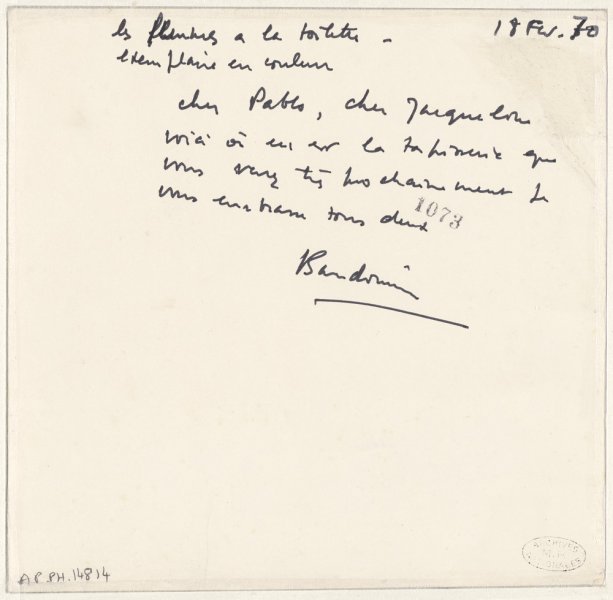 18 Fev. 70
les femmes a la toilette -
exemplaire en couleur
cher Pablo, cher Jacqueline
voici où en est la tapisserie que
vous verez très prochainement je
vous embrasse tous deux
1073
Baudouin
AP.PH.14814
ARCHIVES
NATIONALES